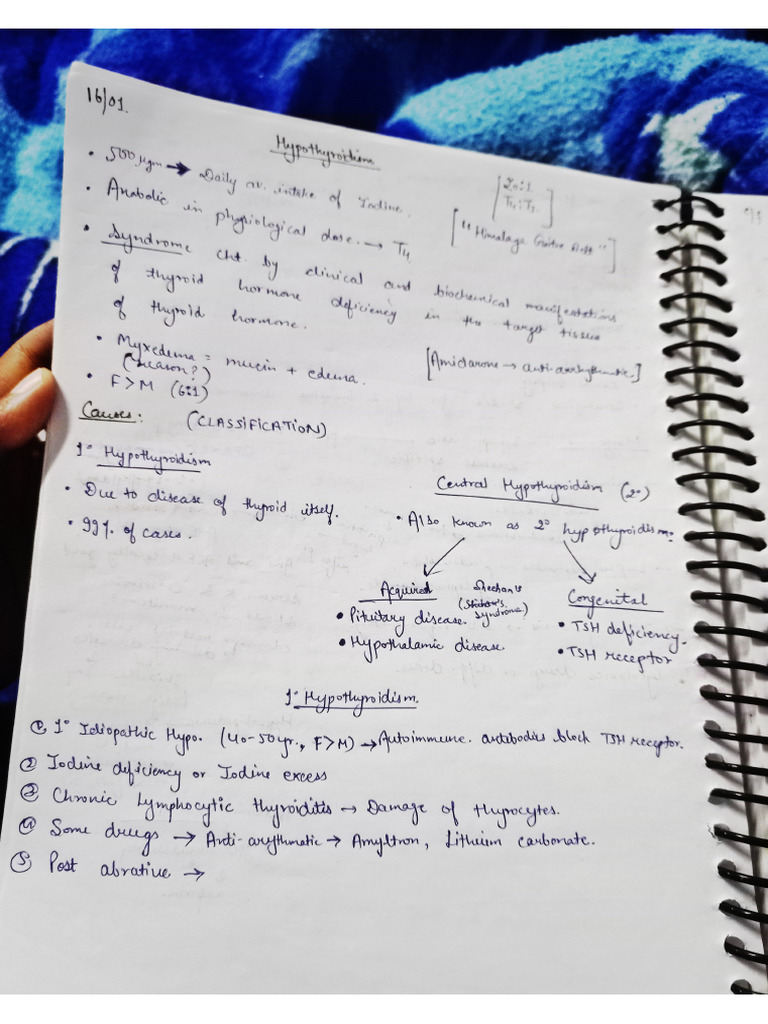 16/01.
Hypothyroidism
• 500 µgm → Daily av. intake of Iodine.
• Anabolic in physiological dose. → T4
["Himalaya "]
• Syndrome cht. by clinical and biochemical manifestations
of thyroid hormone deficiency in the target tissue
of thyroid hormone.
• Myxedema = mucin + edema.
(reason?)
[Amidarone → anti-arrhythmatic.]
• F>M (6:1)
Causes: (CLASSIFICATION)
1° Hypothyroidism
• Due to disease of thyroid itself.
• 99% of cases.
Central Hypothyroidism (2°)
• Also known as 2° hypothyroidism:
Acquired
Sheehan's
(syndrome)
• Pituitary disease.
• Hypothalamic disease.
Congenital
• TSH deficiency.
• TSH receptor
1° Hypothyroidism.
① 1° Idiopathic Hypo. (40-50yr., F>M) → Autoimmune. antibodies block TSH receptor.
② Iodine deficiency or Iodine excess
③ Chronic Lymphocytic thyroiditis → Damage of thyrocytes.
④ Some drugs → Anti-arythmatic → Amyltron, Lithium carbonate.
⑤ Post abrative →